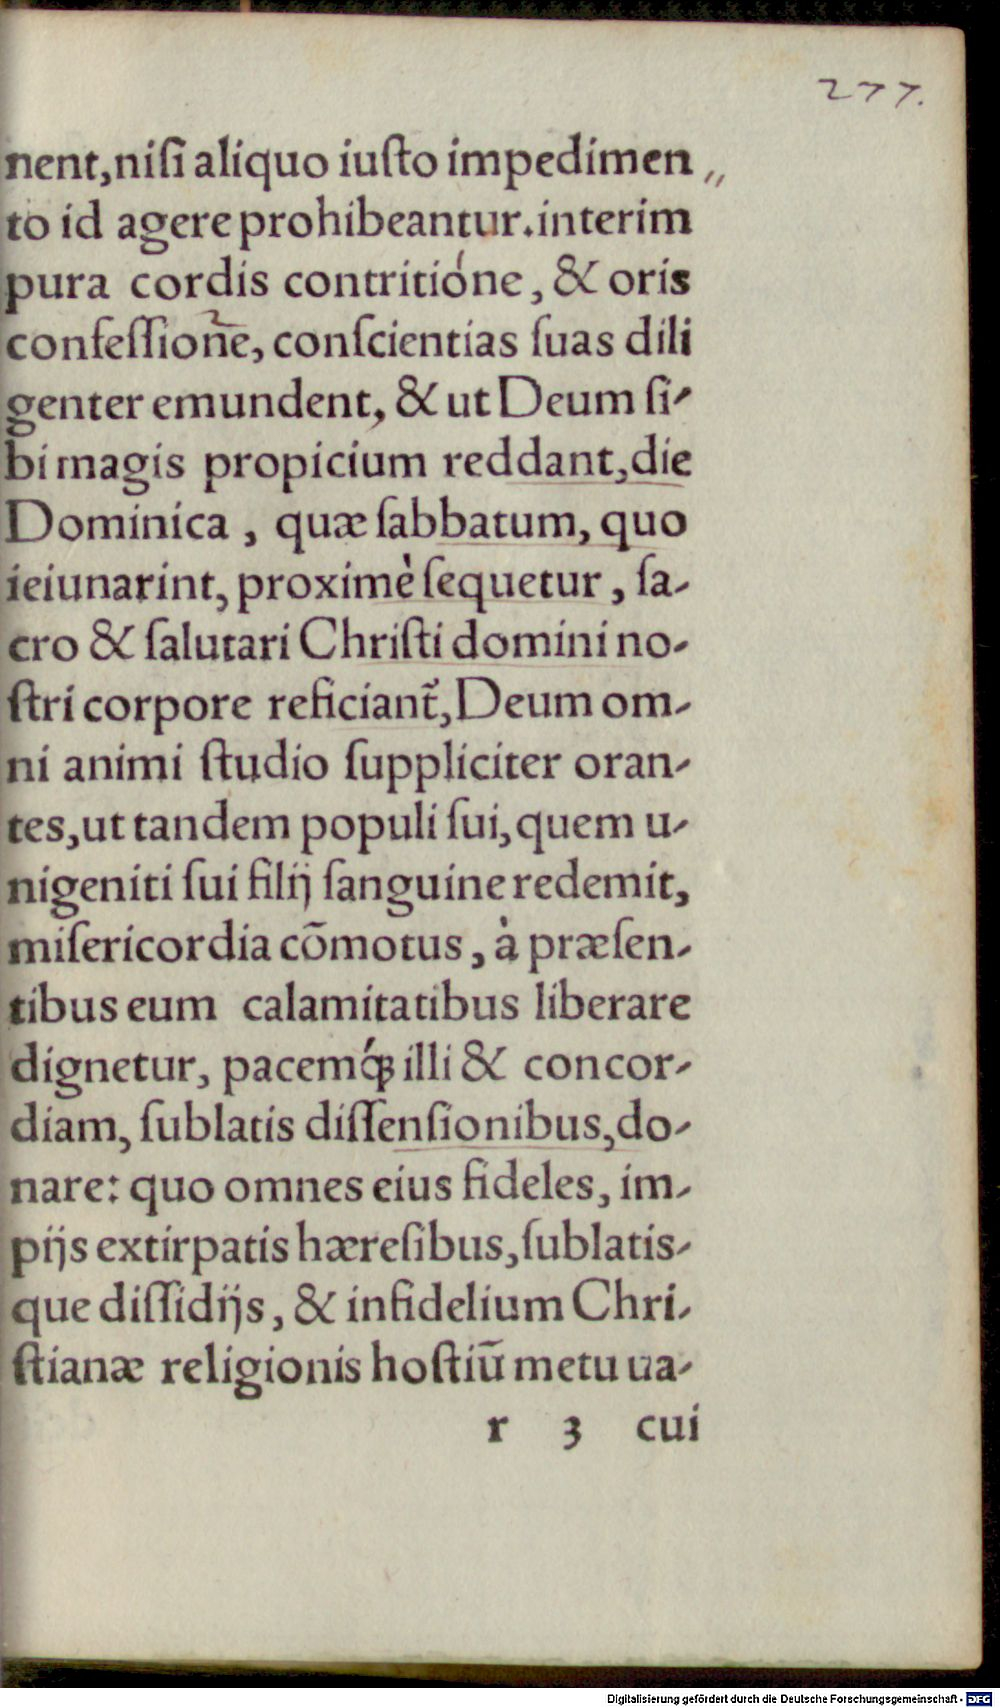 277.
nent,niſi aliquo iuſto impedimen„
to id agere prohibeantur.interim
pura cordis contritióne, & oris
confeſſionē, conſcientias ſuas dili
genter emundent, & ut Deum ſi-
bi magis propicium reddant,die
Dominica , quæ ſabbatum, quo
ieiunarint, proximè ſequetur , ſa-
cro & ſalutari Chriſti domini no-
ſtri corpore reficiant᷑,Deum om-
ni animi ſtudio ſuppliciter oran-
tes,ut tandem populi ſui,quem u-
nigeniti ſui filij ſanguine redemit,
miſericordia cōmotus , à præſen-
tibus eum calamitatibus liberare
dignetur, pacemq́ꝫ illi & concor-
diam, ſublatis diſſenſionibus,do-
nare: quo omnes eius fideles, im-
pijs extirpatis hæreſibus,ſublatis-
que diſſidijs, & infidelium Chri-
ſtianæ religionis hoſtiū metu ua-
r 3 cui
Digitalisierung gefördert durch die Deutsche Forschungsgemeinschaft - DFG